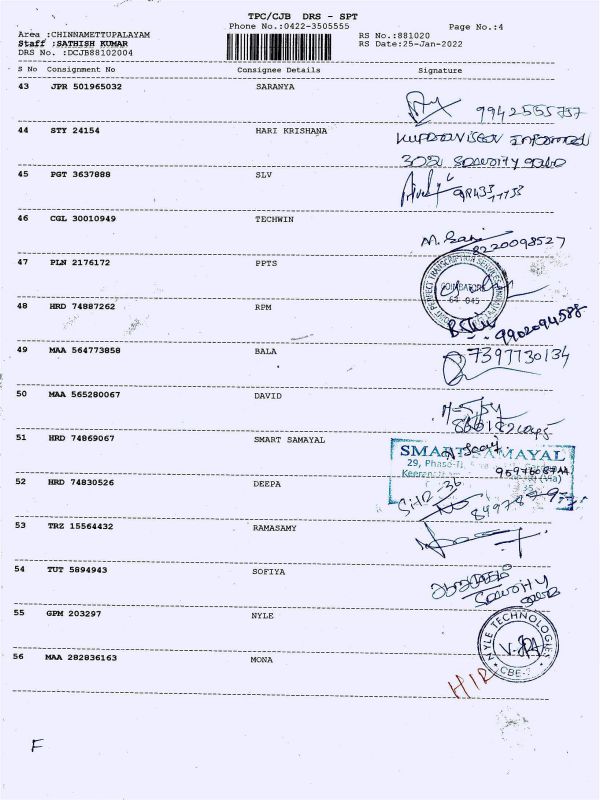 TPC/CJB DRS - SPT
Phone No.:0422-3505555
Page No.:4
Area :CHINNAMETTUPALAYAM
Staff :SATHISH KUMAR
DRS No. :DCJB88102004
RS No.:881020
RS Date:25-Jan-2022
S No Consignment No Consignee Details Signature
43 JPR 501965032 SARANYA
9942555757
44 STY 24154 HARI KRISHANA
45 PGT 3637888 SLV
46 CGL 30010949 TECHWIN
8220098527
47 PLN 2176172 PPTS
PERFECT TRANSCRIPTION SERVICES
COIMBATORE
641 045
48 HRD 74887262 RPM
9902094588
49 MAA 564773858 BALA
7397730134
50 MAA 565280067 DAVID
51 HRD 74869067 SMART SAMAYAL
SMART SAMAYAL
29, Phase-II,
52 HRD 74830526 DEEPA
53 TRZ 15564432 RAMASAMY
54 TUT 5894943 SOFIYA
55 GPM 203297 NYLE
NYLE TECHNOLOGIES
56 MAA 282836163 MONA
F